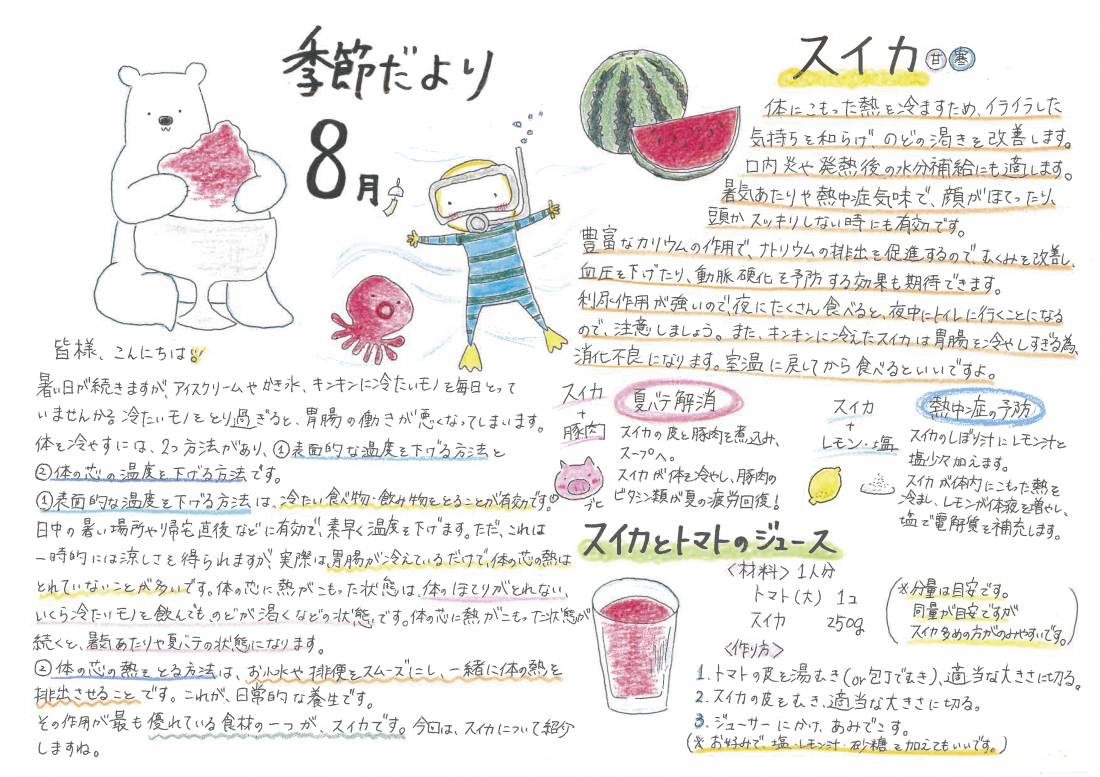 季節だより
8月
皆様、こんにちは!!
暑い日が続きますが、アイスクリームやかき氷、キンキンに冷たいモノを毎日とって
いませんか？冷たいモノをとり過ぎると、胃腸の働きが悪くなってしまいます。
体を冷やすには、2つ方法があり、①表面的な温度を下げる方法と
②体の芯の温度を下げる方法です。
①表面的な温度を下げる方法は、冷たい食べ物・飲み物をとることが有効です。
日中の暑い場所や帰宅直後などに有効で、素早く温度を下げます。ただ、これは
一時的には涼しさを得られますが、実際は、胃腸が冷えているだけで、体の芯の熱は
とれていないことが多いです。体の芯に熱がこもった状態は、体のほてりがとれない、
いくら冷たいモノを飲んでものどが渇くなどの状態です。体の芯に熱がこもった状態が
続くと、暑気あたりや夏バテの状態になります。
②体の芯の熱をとる方法は、お小水や排便をスムーズにし、一緒に体の熱を
排出させることです。これが、日常的な養生です。
その作用が最も優れている食材の一つが、スイカです。今回は、スイカについて紹介
しますね。
スイカ 甘 寒
体にこもった熱を冷ますため、イライラした
気持ちを和らげ、のどの渇きを改善します。
口内炎や発熱後の水分補給にも適します。
暑気あたりや熱中症気味で、顔がほてったり、
頭がスッキリしない時にも有効です。
豊富なカリウムの作用で、ナトリウムの排出を促進するので、むくみを改善し、
血圧を下げたり、動脈硬化を予防する効果も期待できます。
利尿作用が強いので、夜にたくさん食べると、夜中にトイレに行くことになる
ので、注意しましょう。また、キンキンに冷えたスイカは胃腸を冷やしすぎる為、
消化不良になります。室温に戻してから食べるといいですよ。
スイカ
+
豚肉
夏バテ解消
スイカの皮と豚肉を煮込み、
スープへ。
スイカが体を冷やし、豚肉の
ビタミン類が夏の疲労回復!
スイカ
+
レモン・塩
熱中症の予防
スイカのしぼり汁にレモン汁と
塩少々加えます。
スイカが体内にこもった熱を
冷まし、レモンが体液を増やし、
塩で電解質を補充します。
スイカとトマトのジュース
<材料> 1人分
トマト(大) 1コ
スイカ 250g
(※分量は目安です。
同量が目安ですが
スイカ多めの方がのみやすいです。)
<作り方>
1. トマトの皮を湯むき(or包丁でむき)、適当な大きさに切る。
2. スイカの皮をむき、適当な大きさに切る。
3. ジューサーにかけ、あみでこす。
(※お好みで、塩・レモン汁・砂糖を加えてもいいです。)